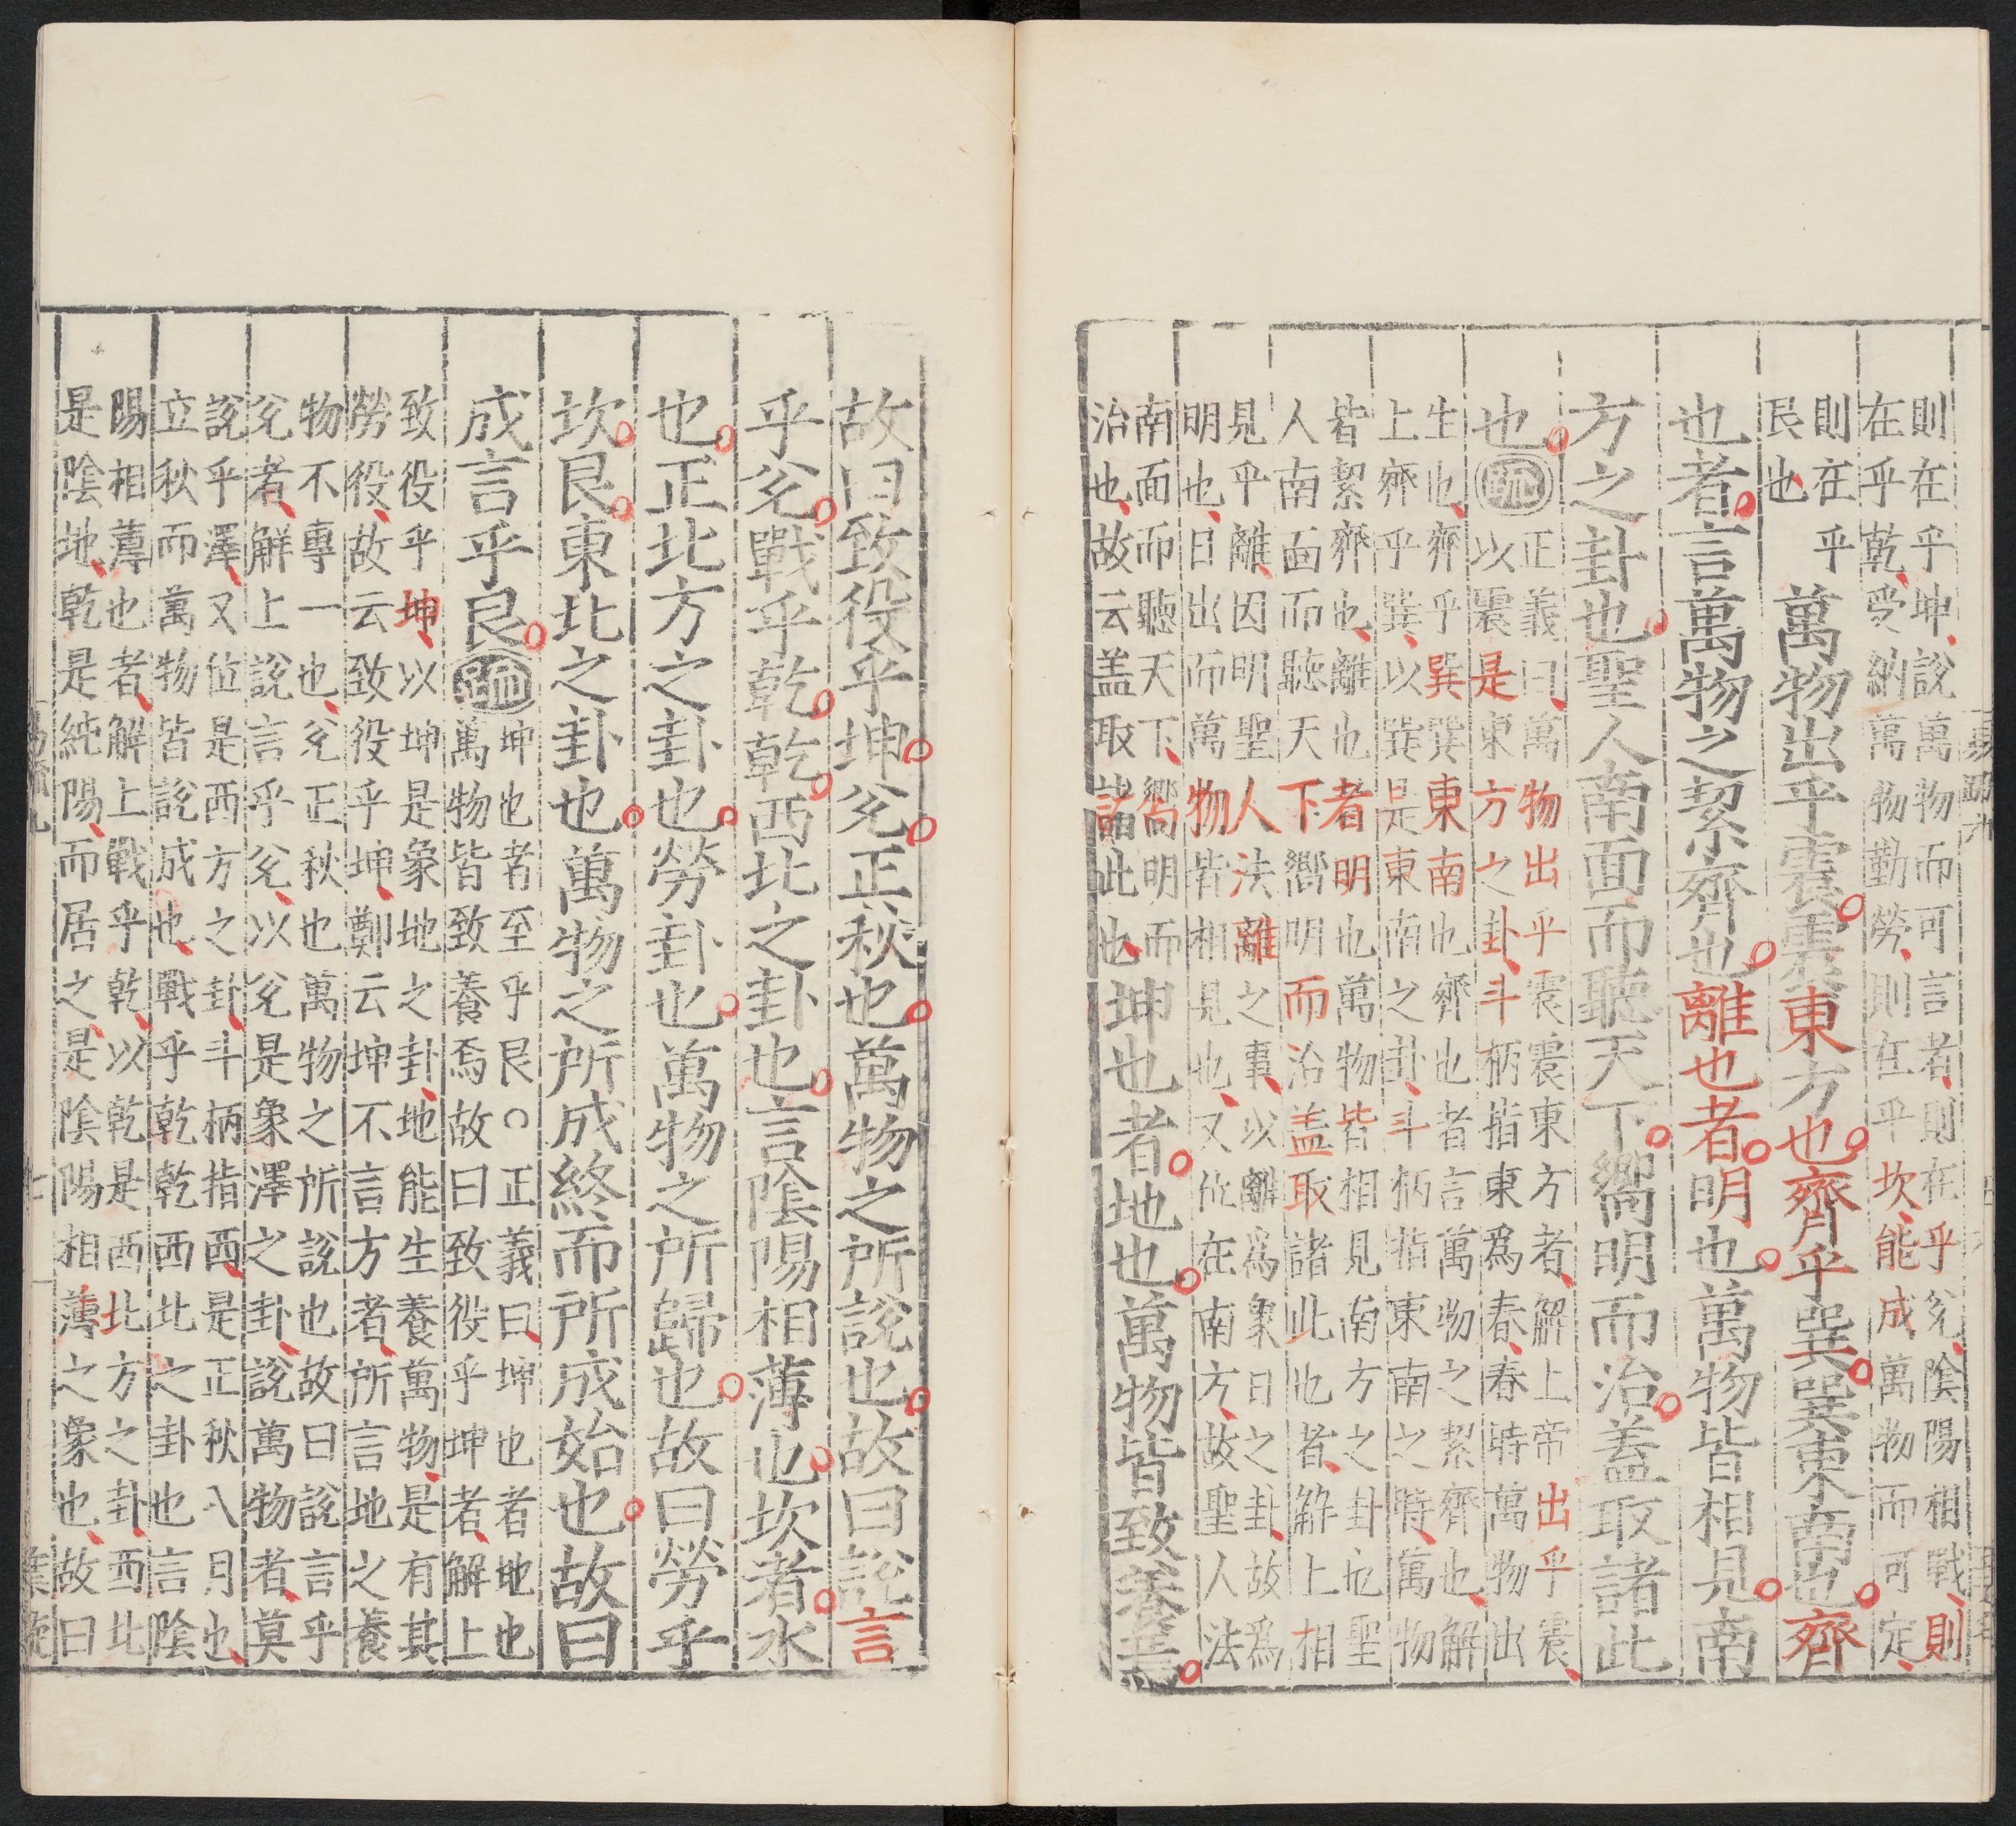 則在乎坤說萬物而可言者則在乎兊陰陽相戰則
在乎乾受納萬物勤勞則在乎坎能成萬物而可定
則在乎
艮也
萬物出乎震震東方也齊乎巽巽東南也齊
也者言萬物之絜齊也離也者明也萬物皆相見南
方之卦也聖人南面而聽天下嚮明而治蓋取諸此
也疏
正義曰萬物出乎震震東方者解上帝出乎震
以震是東方之卦斗柄指東爲春春時萬物出
生也齊乎巽巽東南也齊也者言萬物之絜齊也解
上齊乎巽以巽是東南之卦斗柄指東南之時萬物
皆絜齊也離也者明也萬物皆相見南方之卦也聖
人南面而聽天下嚮明而治盖取諸此也者解上相
見乎離因明聖人法離之事以離爲象日之卦故爲
明也日出而萬物皆相見也又位在南方故聖人法
南面而聽天下嚮明而
治也故云盖取諸此也
坤也者地也萬物皆致養焉
故曰致役乎坤兊正秋也萬物之所說也故曰說言
乎兊戰乎乾乾西北之卦也言陰陽相薄也坎者水
也正北方之卦也勞卦也萬物之所歸也故曰勞乎
坎艮東北之卦也萬物之所成終而所成始也故曰
成言乎艮疏
坤也者至乎艮○正義曰坤也者地也
萬物皆致養焉故曰致役乎坤者解上
致役乎坤以坤是象地之卦地能生養萬物是有其
勞役故云致役乎坤鄭云坤不言方者所言地之養
物不專一也兊正秋也萬物之所說也故曰說言乎
兊者解上說言乎兊以兊是象澤之卦說萬物者莫
說乎澤又位是西方之卦斗柄指西是正秋八月也
立秋而萬物皆說成也戰乎乾乾西北之卦也言陰
陽相薄也者解上戰乎乾以乾是西北方之卦西北
是陰地乾是純陽而居之是陰陽相薄之象也故曰